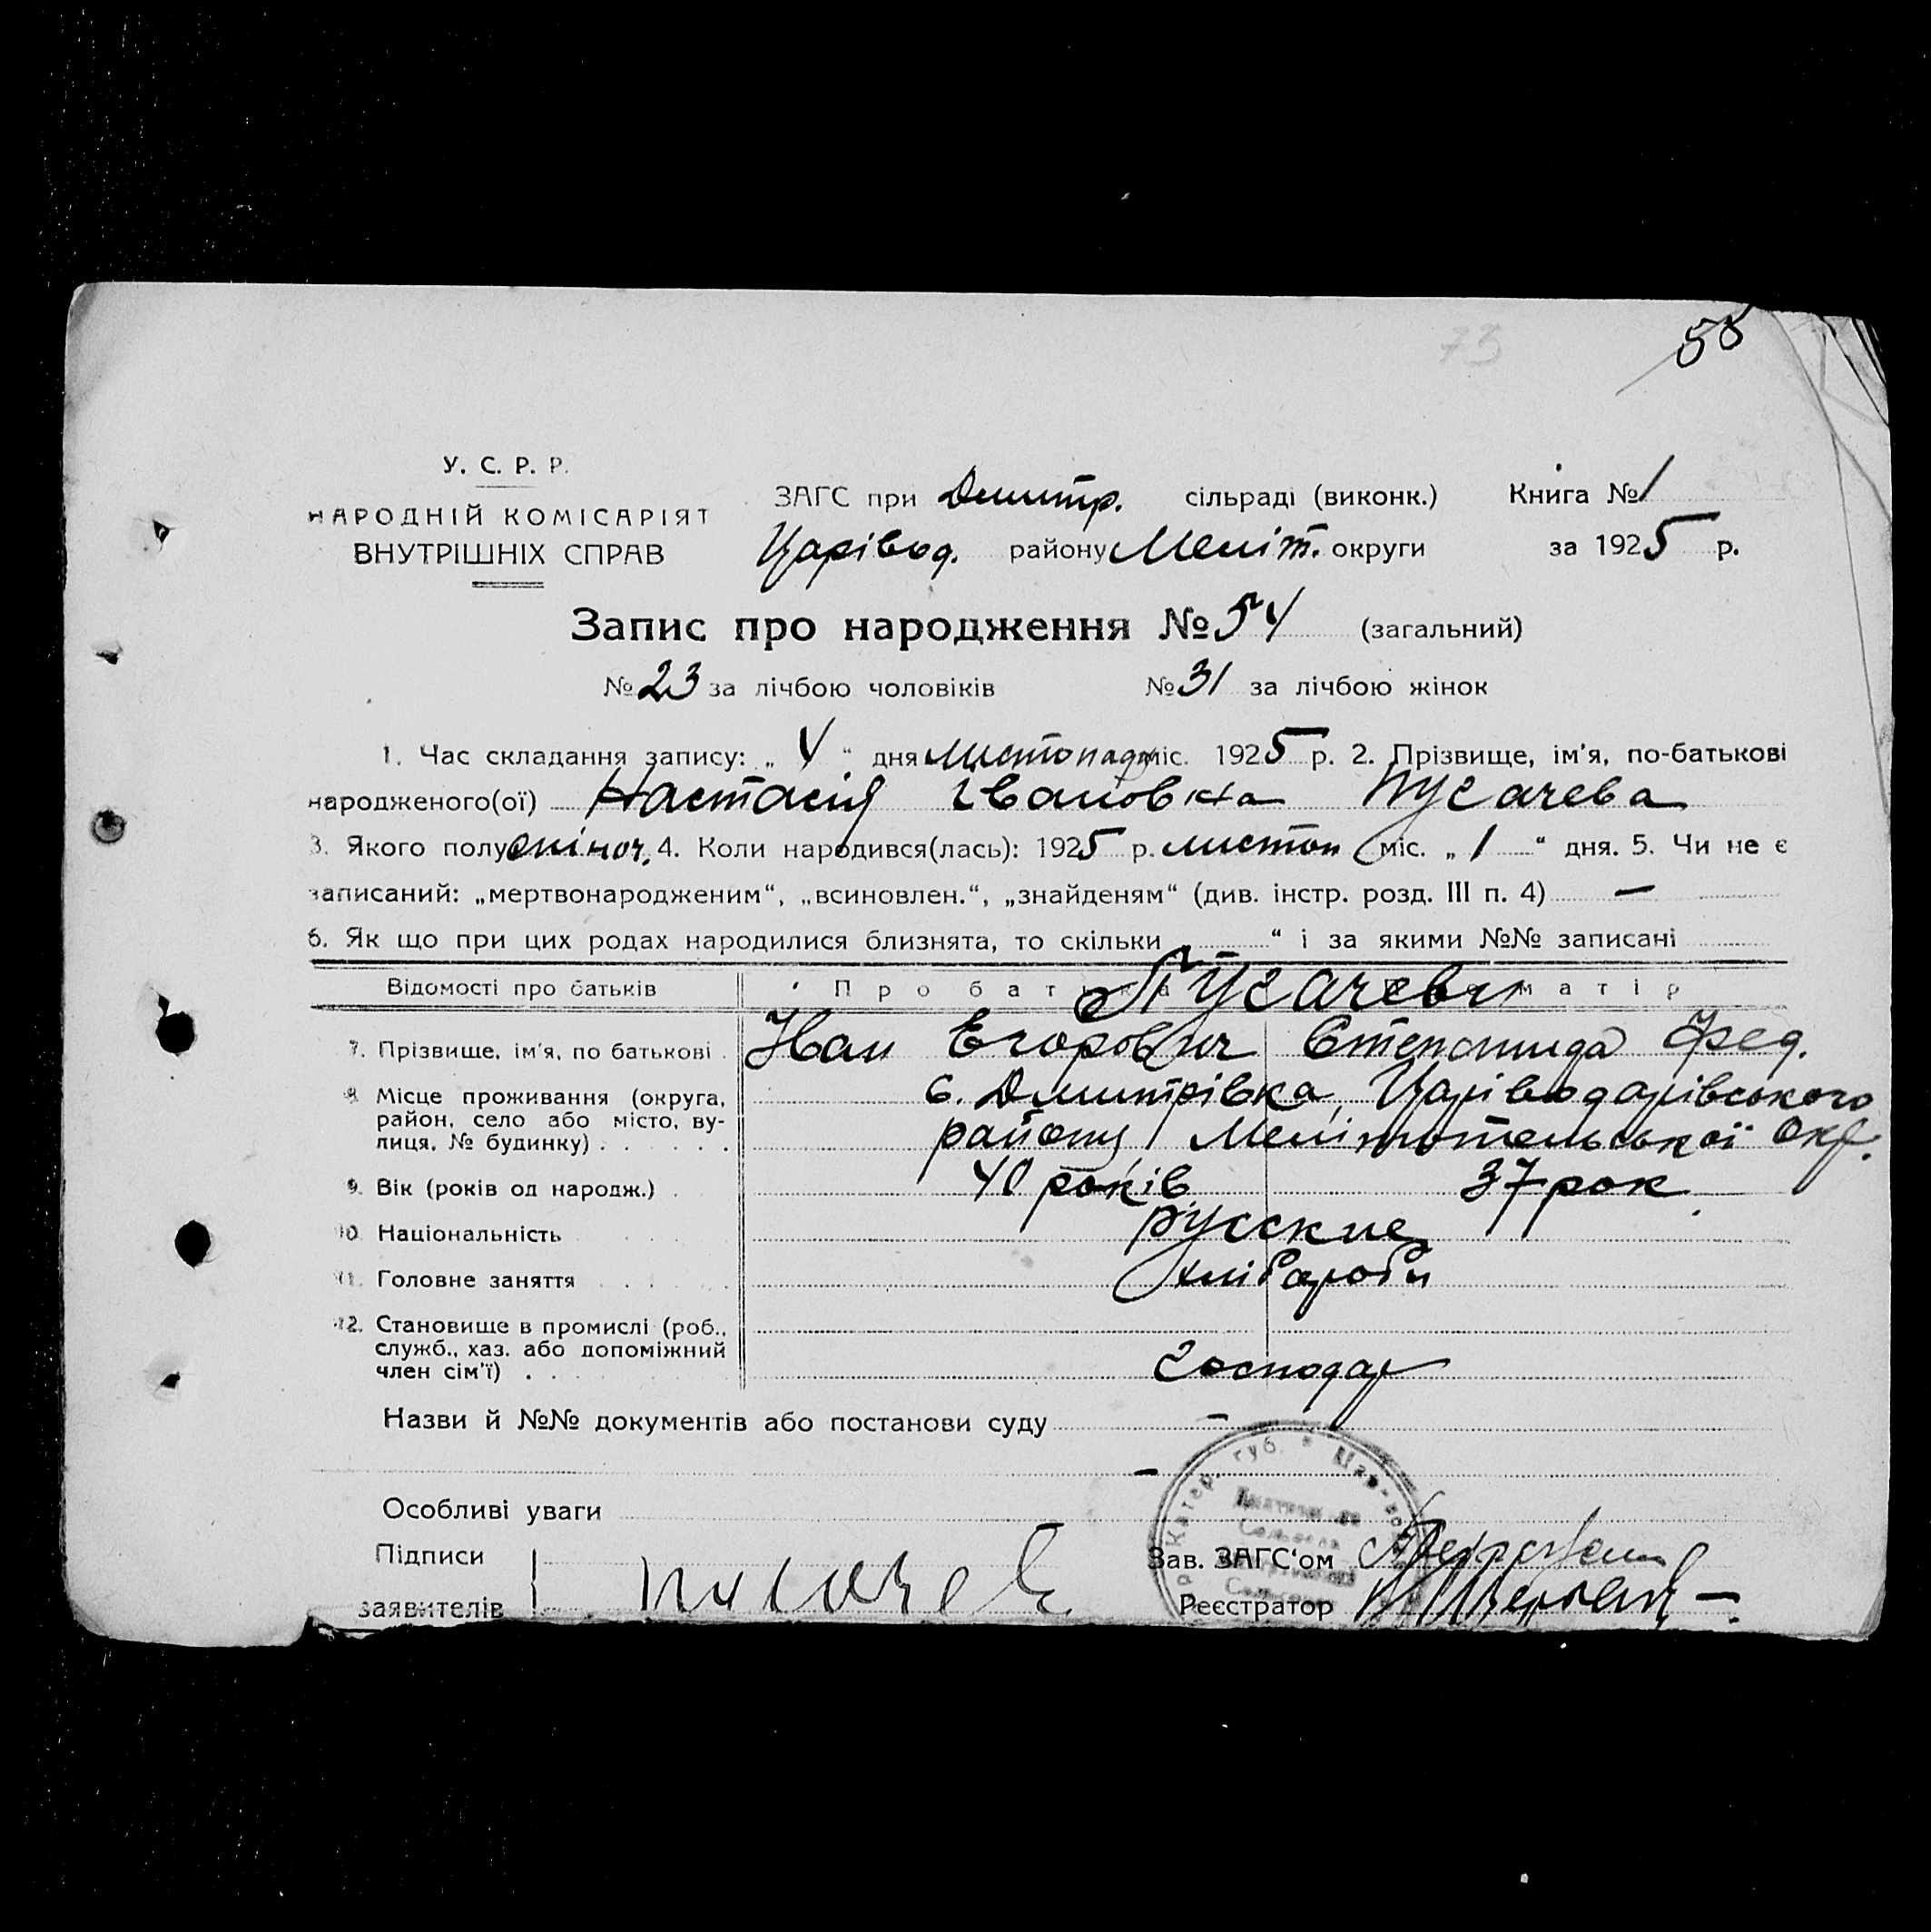 73
58
У. С. Р. Р.
НАРОДНІЙ КОМІСАРІЯТ
ВНУТРІШНІХ СПРАВ
ЗАГС при Дмитр. сільраді (виконк.) Книга № 1
Царівод. району Меліт. округи за 1925 р.
Запис про народження № 54 (загальний)
№ 23 за лічбою чоловіків № 31 за лічбою жінок
1. Час складання запису: „ 4 “ дня листопад міс. 1925 р. 2. Прізвище, ім'я, по-батькові
народженого(ої) Настасія Івановна Пугачева
3. Якого полу жіноч. 4. Коли народився(лась): 1925 р. листоп міс. „ 1 “ дня. 5. Чи не є
записаний: „мертвонародженим“, „всиновлен.“, „знайденям“ (див. інстр. розд. III п. 4) —
6. Як що при цих родах народилися близнята, то скільки „ “ і за якими №№ записані
Відомості про батьків Про батька Про матір
Пугачеви
7. Прізвище, ім'я, по батькові Иван Егорович Степанида Фед.
8. Місце проживання (округа, с. Дмитрівка, Царіводарівського
район, село або місто, ву-
лиця, № будинку) району Мелітопольської Окр.
9. Вік (років од народж.) 40 років 37 рок
10. Національність русские
11. Головне заняття хлібароби
12. Становище в промислі (роб.,
служб., хаз. або допоміжний
член сім'ї) господар
Назви й №№ документів або постанови суду —
—
Особливі уваги
Підписи Зав. ЗАГС'ом
заявителів Пугачев Реєстратор